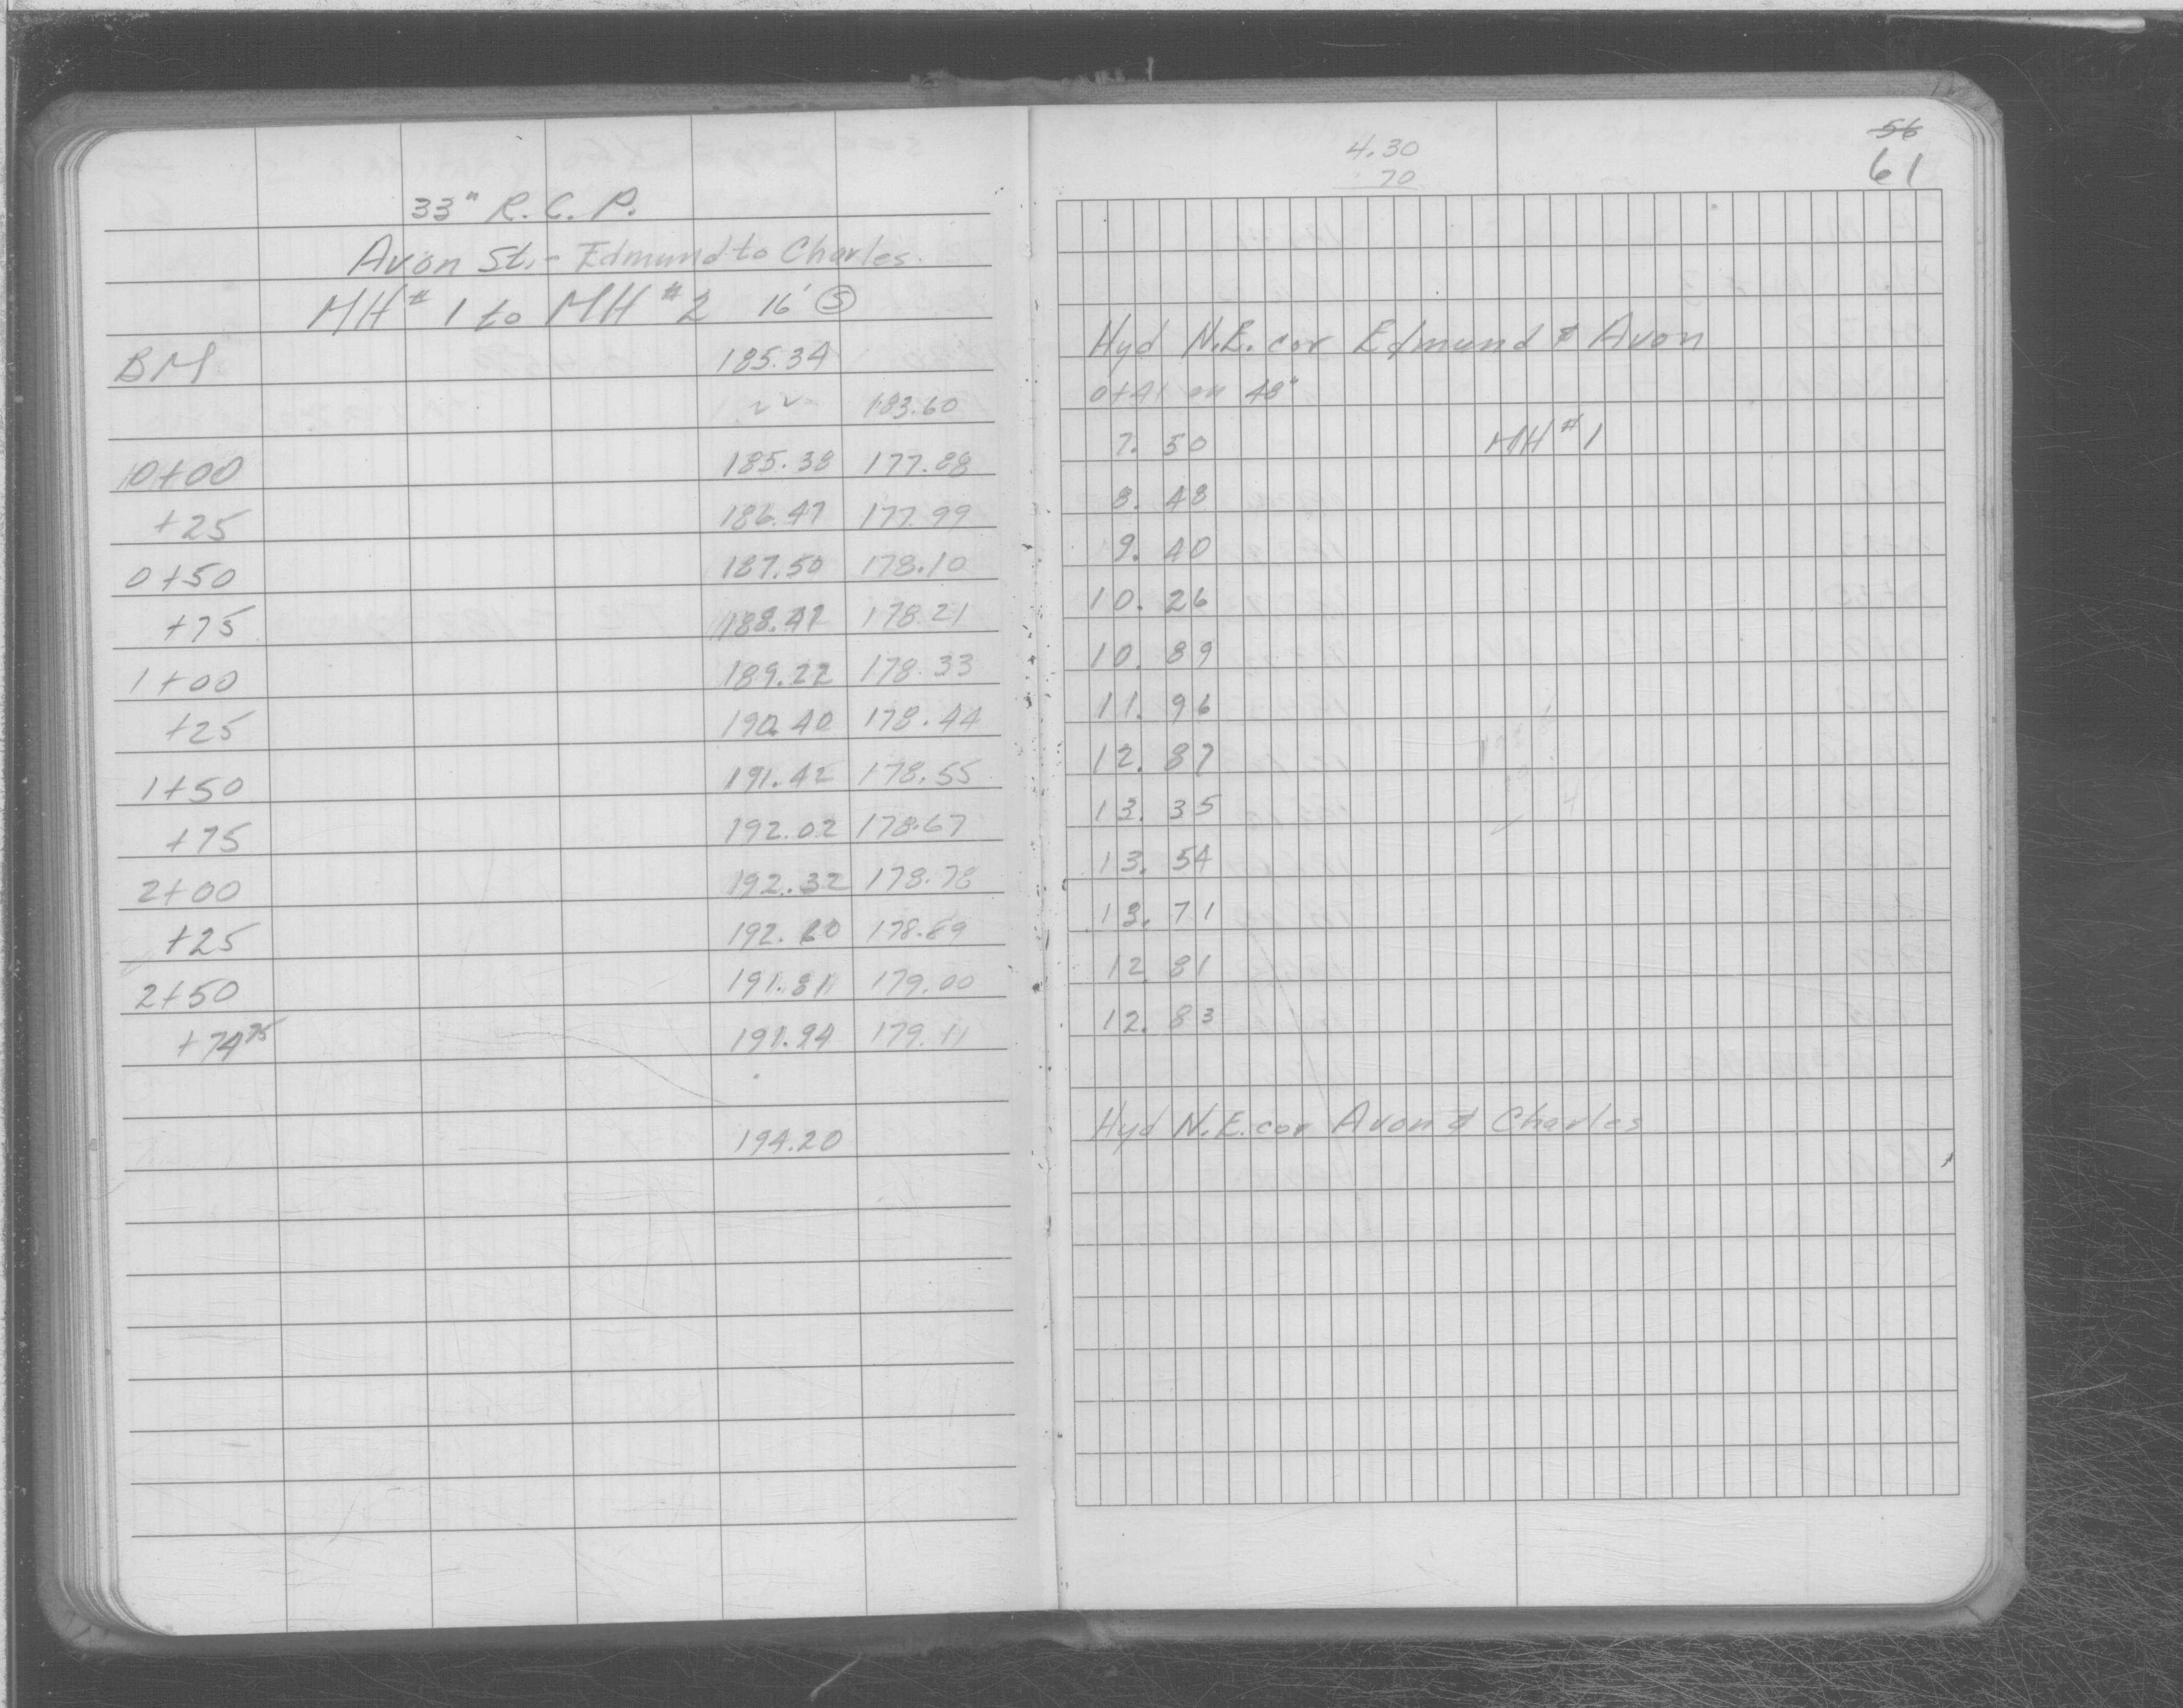 33" R.C.P.
Avon St. - Edmund to Charles.
MH #1 to MH #2 16' Ⓢ
BM 185.34
183.60
0+00 185.38 177.88
+25 186.47 177.99
0+50 187.50 178.10
+75 188.47 178.21
1+00 189.22 178.33
+25 190.40 178.44
1+50 191.42 178.55
+75 192.02 178.67
2+00 192.32 178.78
+25 192.60 178.89
2+50 191.81 179.00
+74.75 191.94 179.11
194.20
4.30
70
56
61
Hyd N.E. cor Edmund & Avon
0+41 on 48"
7.50 MH #1
8.48
9.40
10.26
10.89
11.96
12.87
13.35
13.54
13.71
12.81
12.83
Hyd N.E. cor Avon & Charles